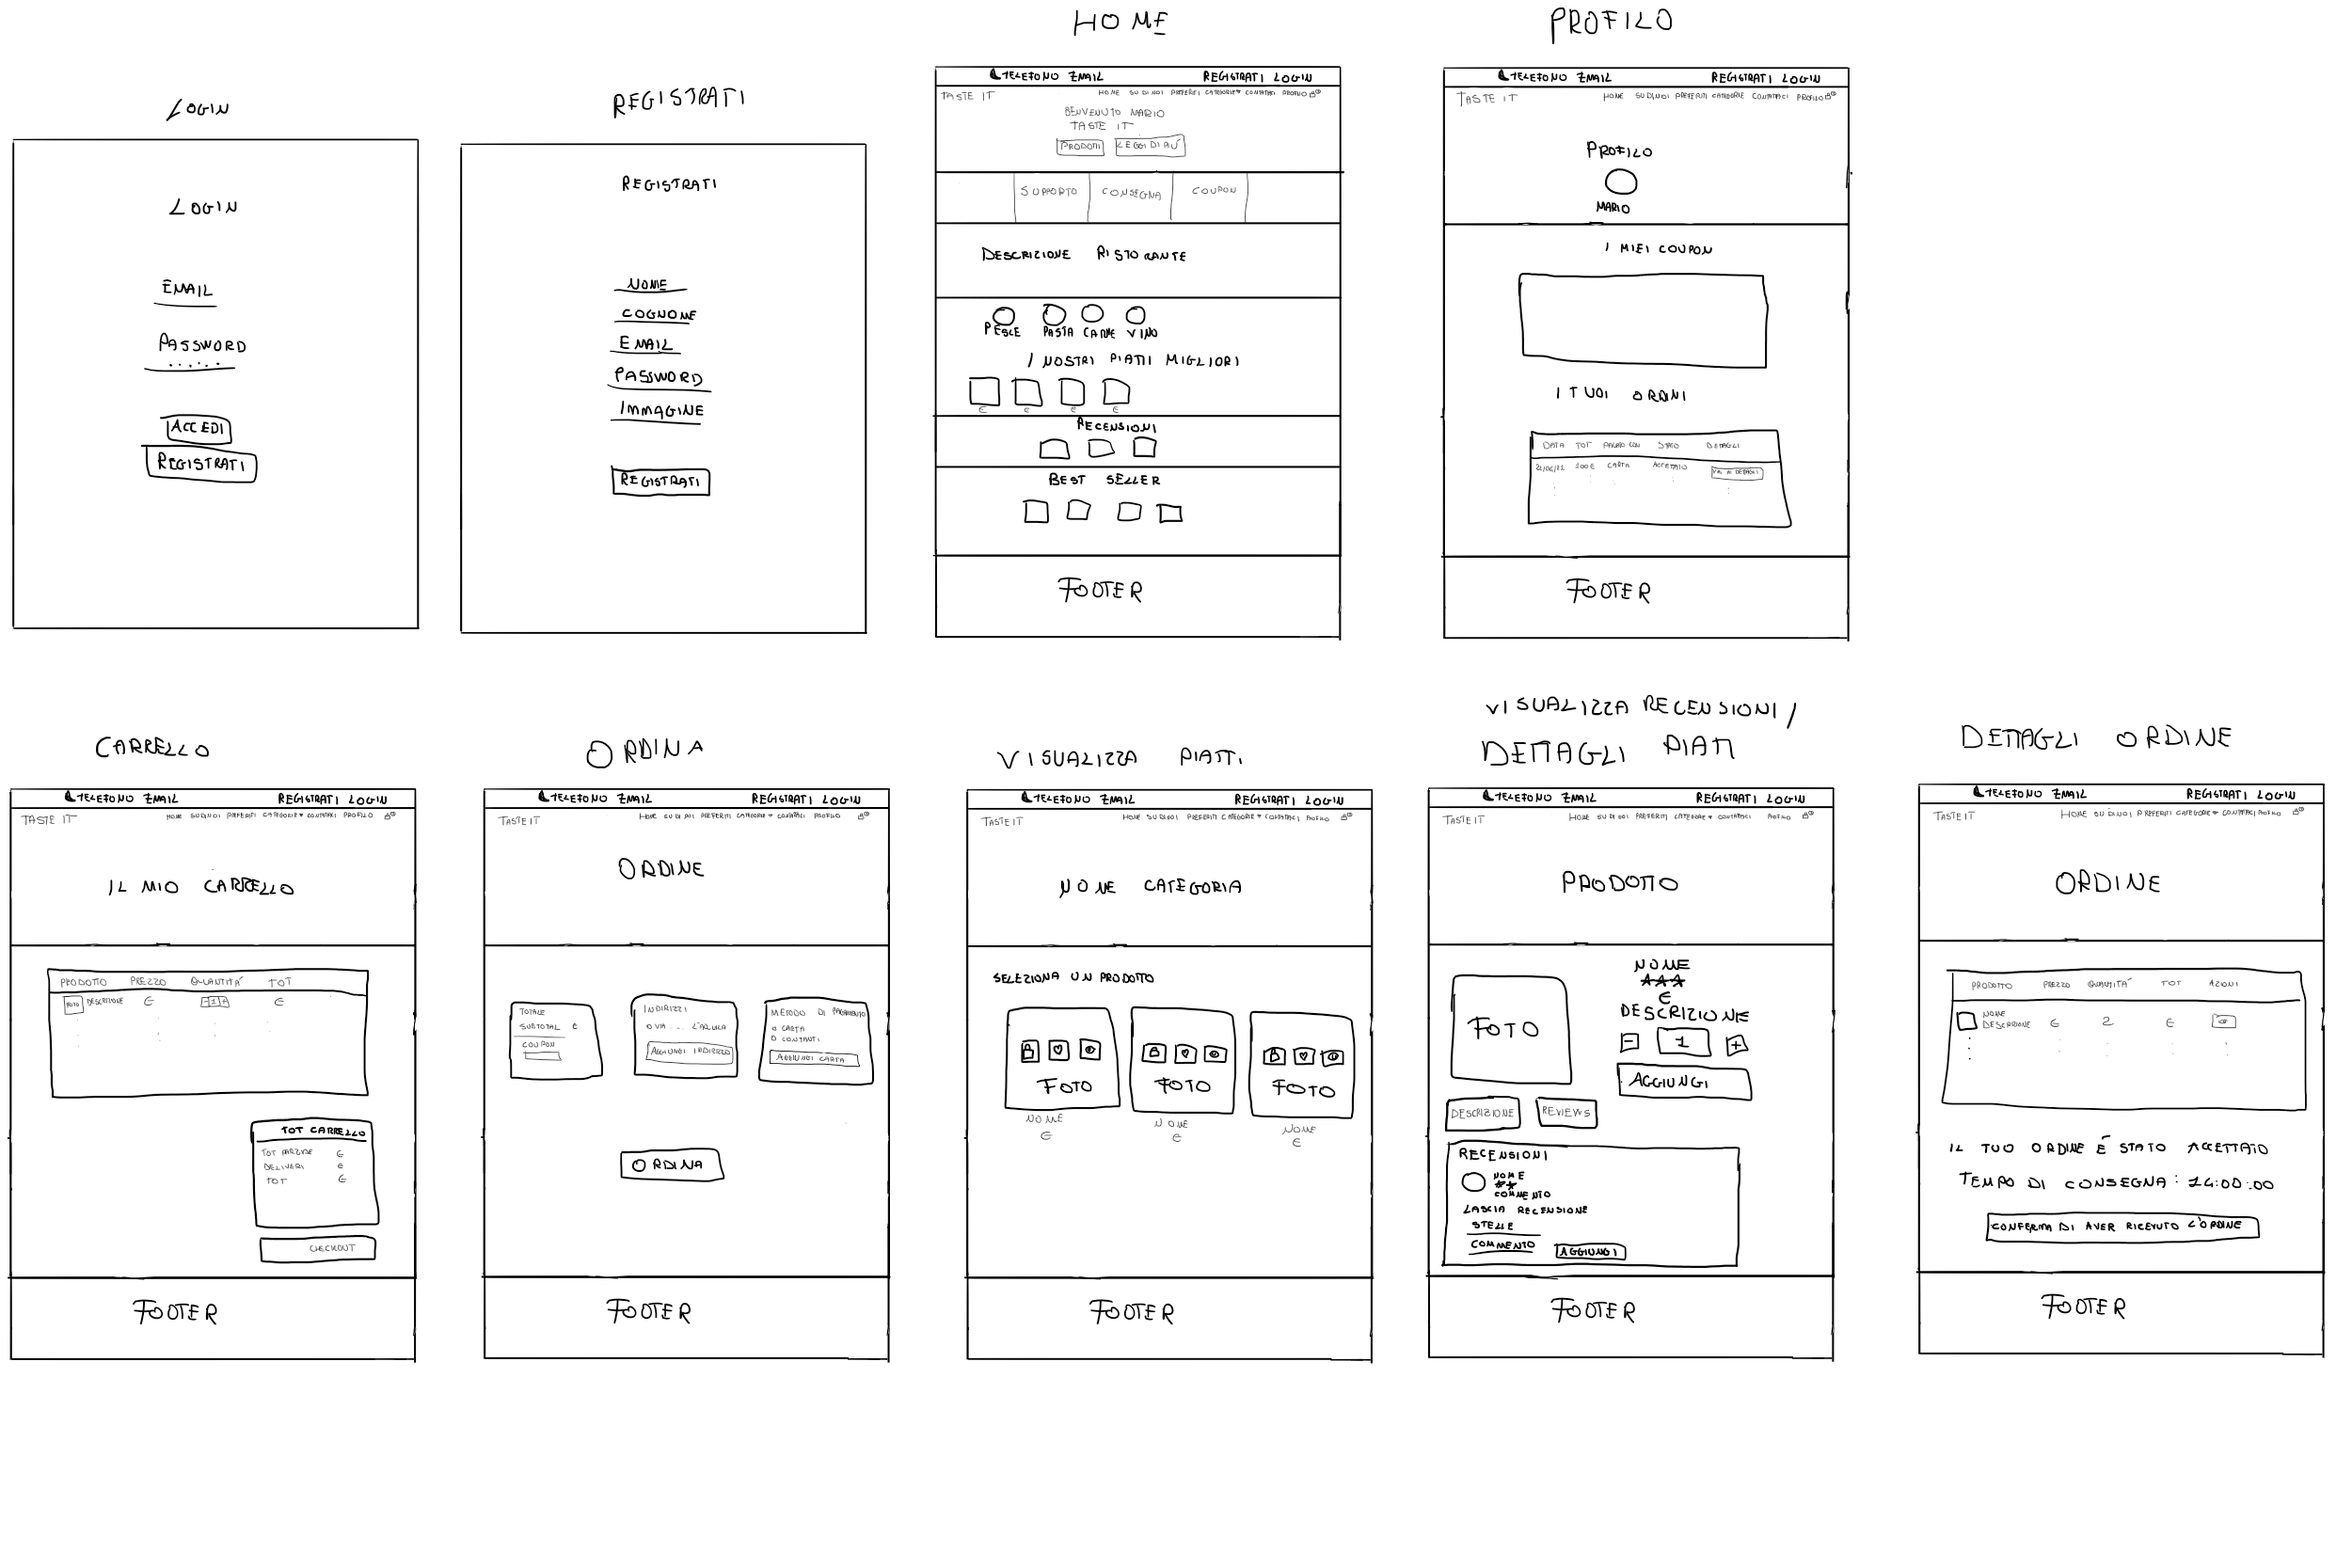 LOGIN
LOGIN
EMAIL
PASSWORD
ACCEDI
REGISTRATI
REGISTRATI
REGISTRATI
NOME
COGNOME
EMAIL
PASSWORD
IMMAGINE
REGISTRATI
HOME
TELEFONO EMAIL REGISTRATI LOGIN
TASTE IT HOME SU DI NOI PREFERITI CATEGORIE CONTATTACI PROFILO
BENVENUTO MARIO
TASTE IT
PRODOTTI LEGGI DI PIÚ
SUPPORTO CONSEGNA COUPON
DESCRIZIONE RISTORANTE
PESCE PASTA CARNE VINO
I NOSTRI PIATTI MIGLIORI
€ € € €
RECENSIONI
BEST SELLER
FOOTER
PROFILO
TELEFONO EMAIL REGISTRATI LOGIN
TASTE IT HOME SU DI NOI PREFERITI CATEGORIE CONTATTACI PROFILO
PROFILO
MARIO
I MIEI COUPON
I TUOI ORDINI
DATA TOT PAGATO CON STATO DETTAGLI
500 € CARTA ACCETTATO VAI AI DETTAGLI
FOOTER
CARRELLO
TELEFONO EMAIL REGISTRATI LOGIN
TASTE IT HOME SU DI NOI PREFERITI CATEGORIE CONTATTACI PROFILO
IL MIO CARRELLO
PRODOTTO PREZZO QUANTITÁ TOT
FOTO DESCRIZIONE € - 1 + €
TOT CARRELLO
TOT PARZIALE €
DELIVERI €
TOT €
CHECKOUT
FOOTER
ORDINA
TELEFONO EMAIL REGISTRATI LOGIN
TASTE IT HOME SU DI NOI PREFERITI CATEGORIE CONTATTACI PROFILO
ORDINE
TOTALE
SUBTOTAL €
COUPON
INDIRIZZI
O VIA ... L'AQUILA
AGGIUNGI INDIRIZZO
METODO DI PAGAMENTO
O CARTA
O CONTANTI
AGGIUNGI CARTA
ORDINA
FOOTER
VISUALIZZA PIATTI
TELEFONO EMAIL REGISTRATI LOGIN
TASTE IT HOME SU DI NOI PREFERITI CATEGORIE CONTATTACI PROFILO
NOME CATEGORIA
SELEZIONA UN PRODOTTO
FOTO FOTO FOTO
NOME NOME NOME
€ € €
FOOTER
VISUALIZZA RECENSIONI /
DETTAGLI PIATTI
TELEFONO EMAIL REGISTRATI LOGIN
TASTE IT HOME SU DI NOI PREFERITI CATEGORIE CONTATTACI PROFILO
PRODOTTO
FOTO
NOME
€
DESCRIZIONE
- 1 +
AGGIUNGI
DESCRIZIONE REVIEWS
RECENSIONI
NOME
COMMENTO
LASCIA RECENSIONE
STELLE
COMMENTO AGGIUNGI
FOOTER
DETTAGLI ORDINE
TELEFONO EMAIL REGISTRATI LOGIN
TASTE IT HOME SU DI NOI PREFERITI CATEGORIE CONTATTACI PROFILO
ORDINE
PRODOTTO PREZZO QUANTITÁ TOT AZIONI
NOME
DESCRIZIONE € 2 €
IL TUO ORDINE É STATO ACCETTATO
TEMPO DI CONSEGNA: 14:00:00
CONFERMA DI AVER RICEVUTO L'ORDINE
FOOTER